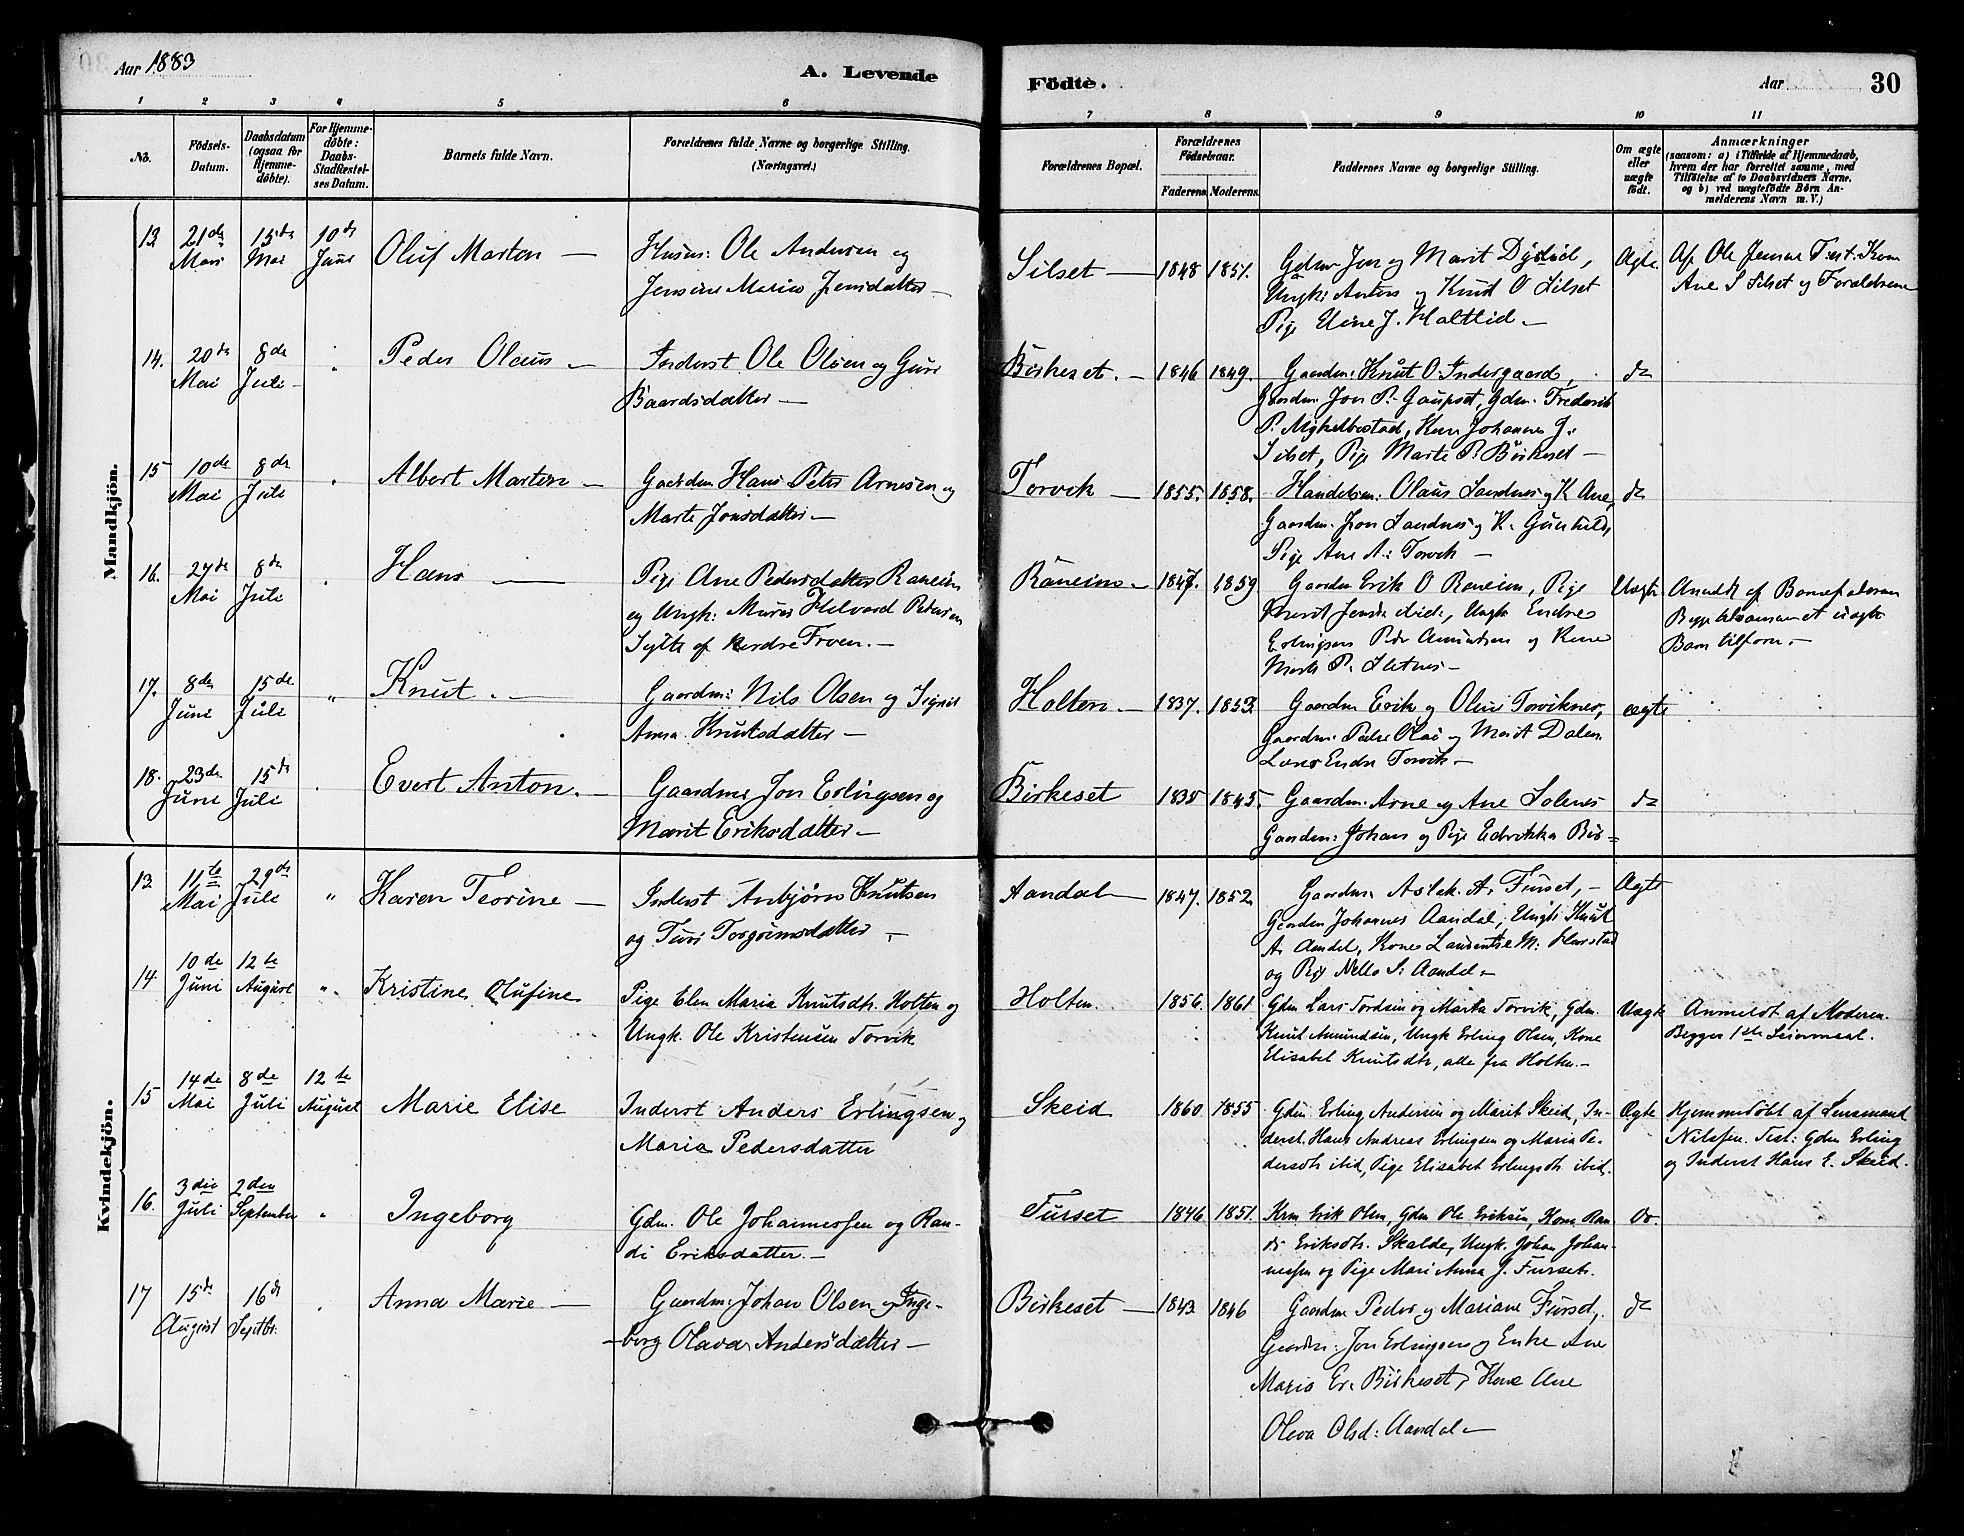 Aar 1883
A. Levende
Födte.
Aar
30
1 2 3 4 5 6 7 8 9 10 11
No.
Födsels-Datum.
Daabsdatum (ogsaa for Hjemme-döbte).
For Hjemme-döbte: Daabs-Stadfæstel-ses Datum.
Barnets fulde Navn.
Forældrenes fulde Navne og borgerlige Stilling. (Næringsvei.)
Forældrenes Bopæl.
Forældrenes Födselsaar.
Faderens. Moderens.
Faddernes Navne og borgerlige Stilling.
Om ægte eller uægte födt.
Anmærkninger
(saasom: a) i Tilfælde af Hjemmedaab, hvem der har forrettet samme, med Tilföielse af to Daabsvidners Navne, og b) ved uægtefödte Börn Anmelderens Navn m. V.)
Mandkjön.
13. 21de Mars 15de Mai 10de Juni Oluf Marton —
Ole Andersen og
Jensine Marie Jensdatter —
Silset — 1848 1851.
Gdmr Jon og Marit
Ungk: Anders og Knud O Silset
Pige Eline J. Holtlid —
Ægte.
Af Ole Jensen Test: Kone
Ane S Silset og Forældrene
14. 20de Mai 8de Juli — " Peder Olaus —
Inderst Ole Olsen og Guri
Baardsdatter —
Birkeset. — 1846 1849.
Gaardm: Knut O. Indergaard,
Gaardm Jon P. Gaupset, Gdm. Frederik
P. Myklebostad, Kone Johannes J.
Silset, Pige Marte P. Birkeset —
do
15 10de Mai 8de Juli " Albert Martin —
Gaardm Hans Peter Arnesen og
Marte Jonsdatter —
Torvik — 1855. 1858.
Handelsm: Olaus Sandnes og K. Ane,
Gaardm. Jon Sandnes og K. Gunhild,
Pige Ane A. Torvik —
do
16. 27de Mai 8de Juli " Hans —
Pige Ane Pedersdatter Raneim
og Ungk: Halvard Pedersen
Sylte af Froen. —
Raneim — 1847. 1859
Gaardm Erik O Raneim, Pige
Ungk Endre
Erlingsen Peder Amundsen og Kone
Marit P. Sletnes —
Uægte
Anmeldt af Barnefaderen
Begge tilsammen et uægte
Barn tilforn. —
17. 8de Juni 15de Juli " Knut. —
Gaardm: Nils Olsen og Signe
Anna Knutsdatter —
Holten — 1837. 1853.
Gaardm Erik og Oline Torviknes,
Gaardm: Peder Olai og Marit Dalen
Endre Torvik —
ægte
18. 23de Juni 15de Juli " Evert Anton. —
Gaardm: Jon Erlingsen og
Marit Eriksdatter —
Birkeset 1835 1845.
Gaardm: Arne og Ane Solenes
Gaardm: Johans og Pige Edvikka Bir=
do
Kvindekjön.
13. 11te Mai 29de Juli " Karen Teorine —
Inderst Anbjørn Knutsen
og Turi Torgrimsdatter —
Aandal — 1847. 1852
Gaardm Aslak A. Furset, —
Gaardm Johannes Aandal, Ungk: Knut
A. Aandal, Kone Laurentse M: Harstad
og Pige Nella S. Aandal —
Ægte
14 10de Juni 12te August " Kristine Olufine
Pige Elen Maria Knutsdtr. Holten og
Ungk. Ole Kristensen Torvik
Holten. 1856. 1861
Gdm Lars Tordsen og Marta Torvik, Gdm.
Knut Amundsen, Ungk Erling Olsen, Kone
Elisabet Knutsdtr, alle fra Holten. —
Uægte
Anmeldt af Moderen.
Begges 1ste Leiermaal.
15 14de Mai 8de Juli 12te August Marie Elise
Inderst Anders Erlingsen og
Maria Pedersdatter
Skeid 1860. 1855
Gdm. Erling Andersen og Marit Skeid, In-
derst. Hans Andreas Erlingsen og Maria Pe-
dersdtr ibid, Pige Elisabet Erlingsdtr. ibid.
Ægte
Hjemmedöbt af Lensmand
Nilssen. Test: Gdm Erling
og Inderst Hans E. Skeid.
16. 3die Juli 2den September " Ingeborg
Gdm. Ole Johannessen og Ran-
di Eriksdatter. —
Furset 1846 1851
Krm Erik Olsen, Gdm Ole Eriksen, Kone Ran
di Eriksdtr. Skalde, Ungk. Johan Johan-
nessen og Pige Mari Anna J. Furset.
do.
17 15de August 16de Septbr. " Anna Marie —
Gaardm: Johan Olsen og Inge-
borg Olava Andersdatter —
Birkeset — 1843 1846
Gaardm Peder og Mariane Furset,
Gaardm: Jon Erlingsen og Enke Ane
Maria Er. Birkeset, Kone Ane
Oleva Olsd: Aandal —
do